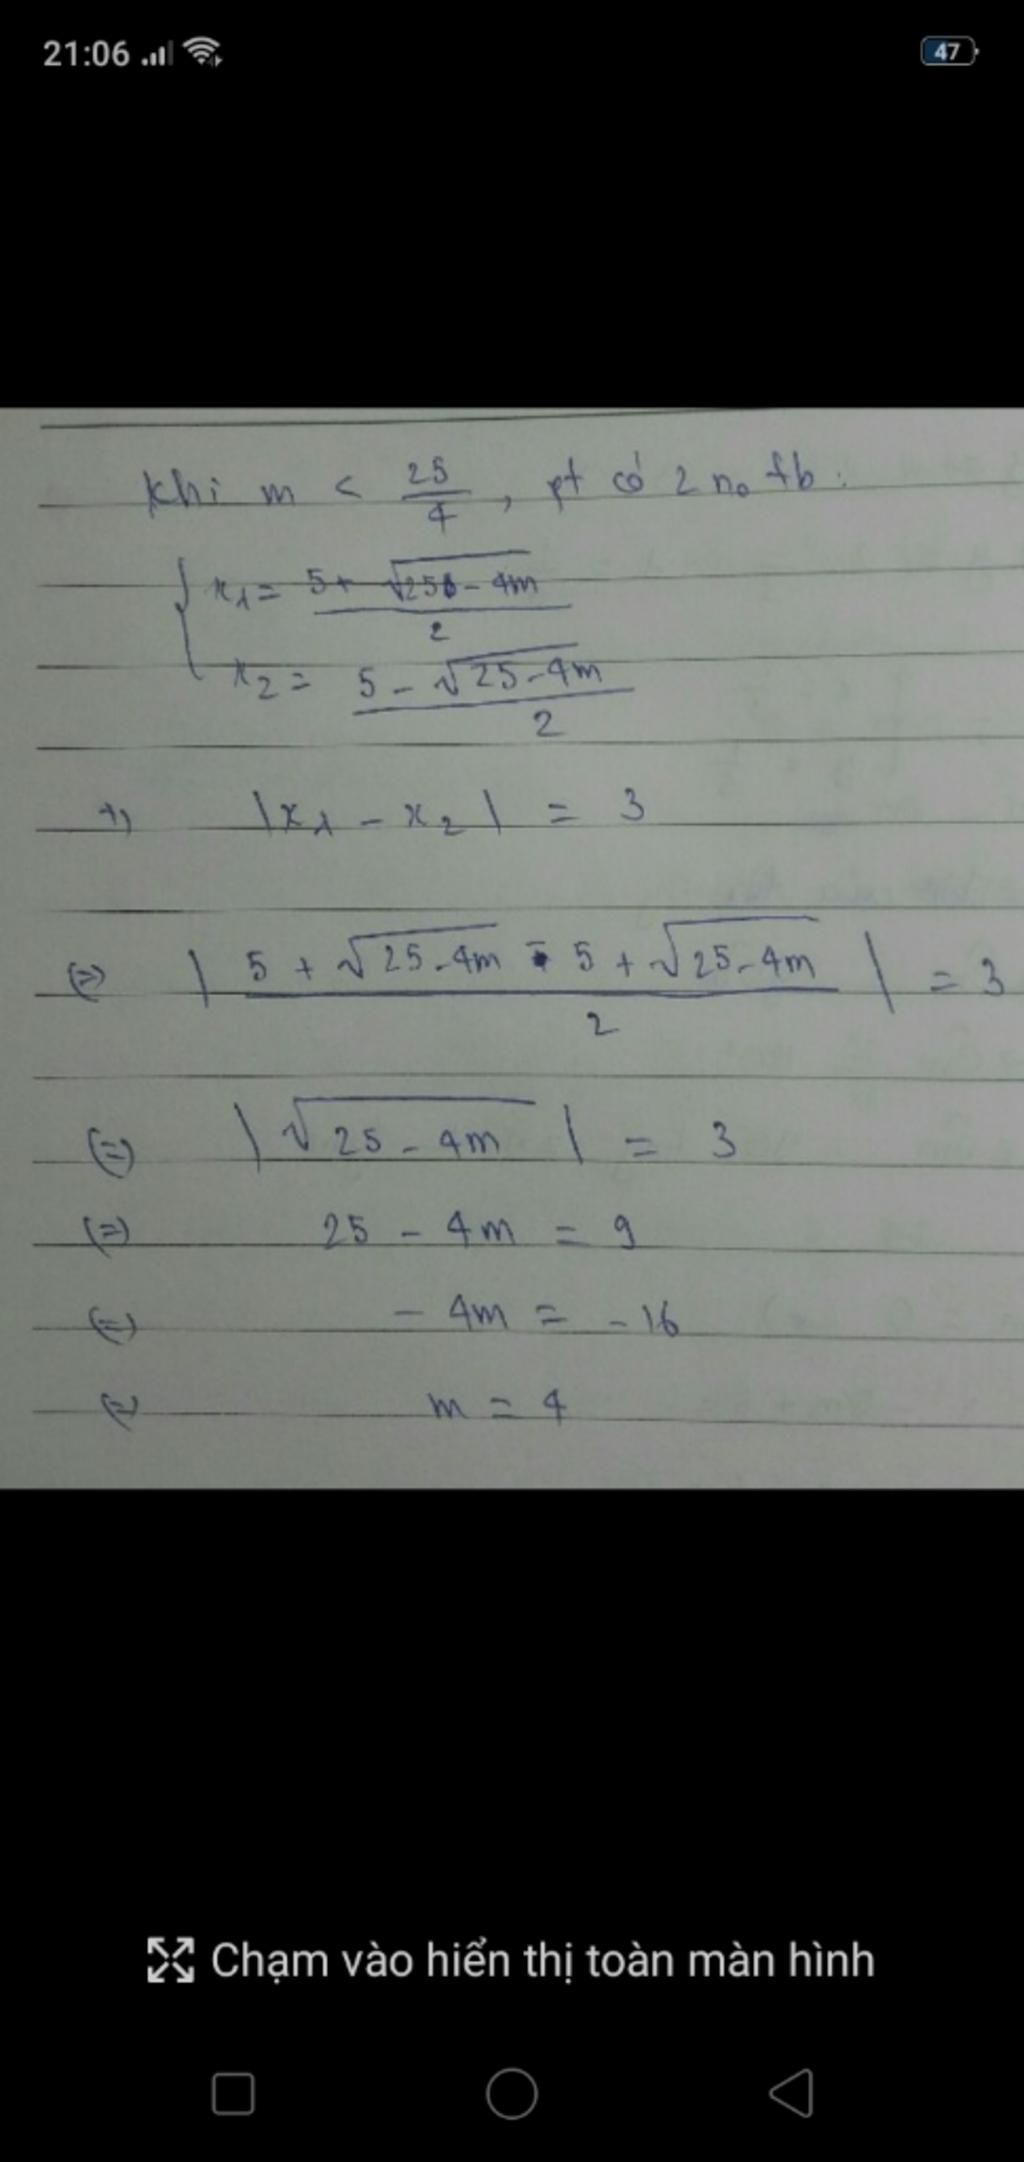 21:06
47
Khi m < 25/4, pt có 2 n₀ tb:
x₁ = (5 + √(25 - 4m))/2
x₂ = (5 - √(25 - 4m))/2
+) |x₁ - x₂| = 3
(=) |(5 + √(25 - 4m) - 5 + √(25 - 4m))/2| = 3
(=) |√(25 - 4m)| = 3
(=) 25 - 4m = 9
(=) - 4m = - 16
(=) m = 4
Chạm vào hiển thị toàn màn hình